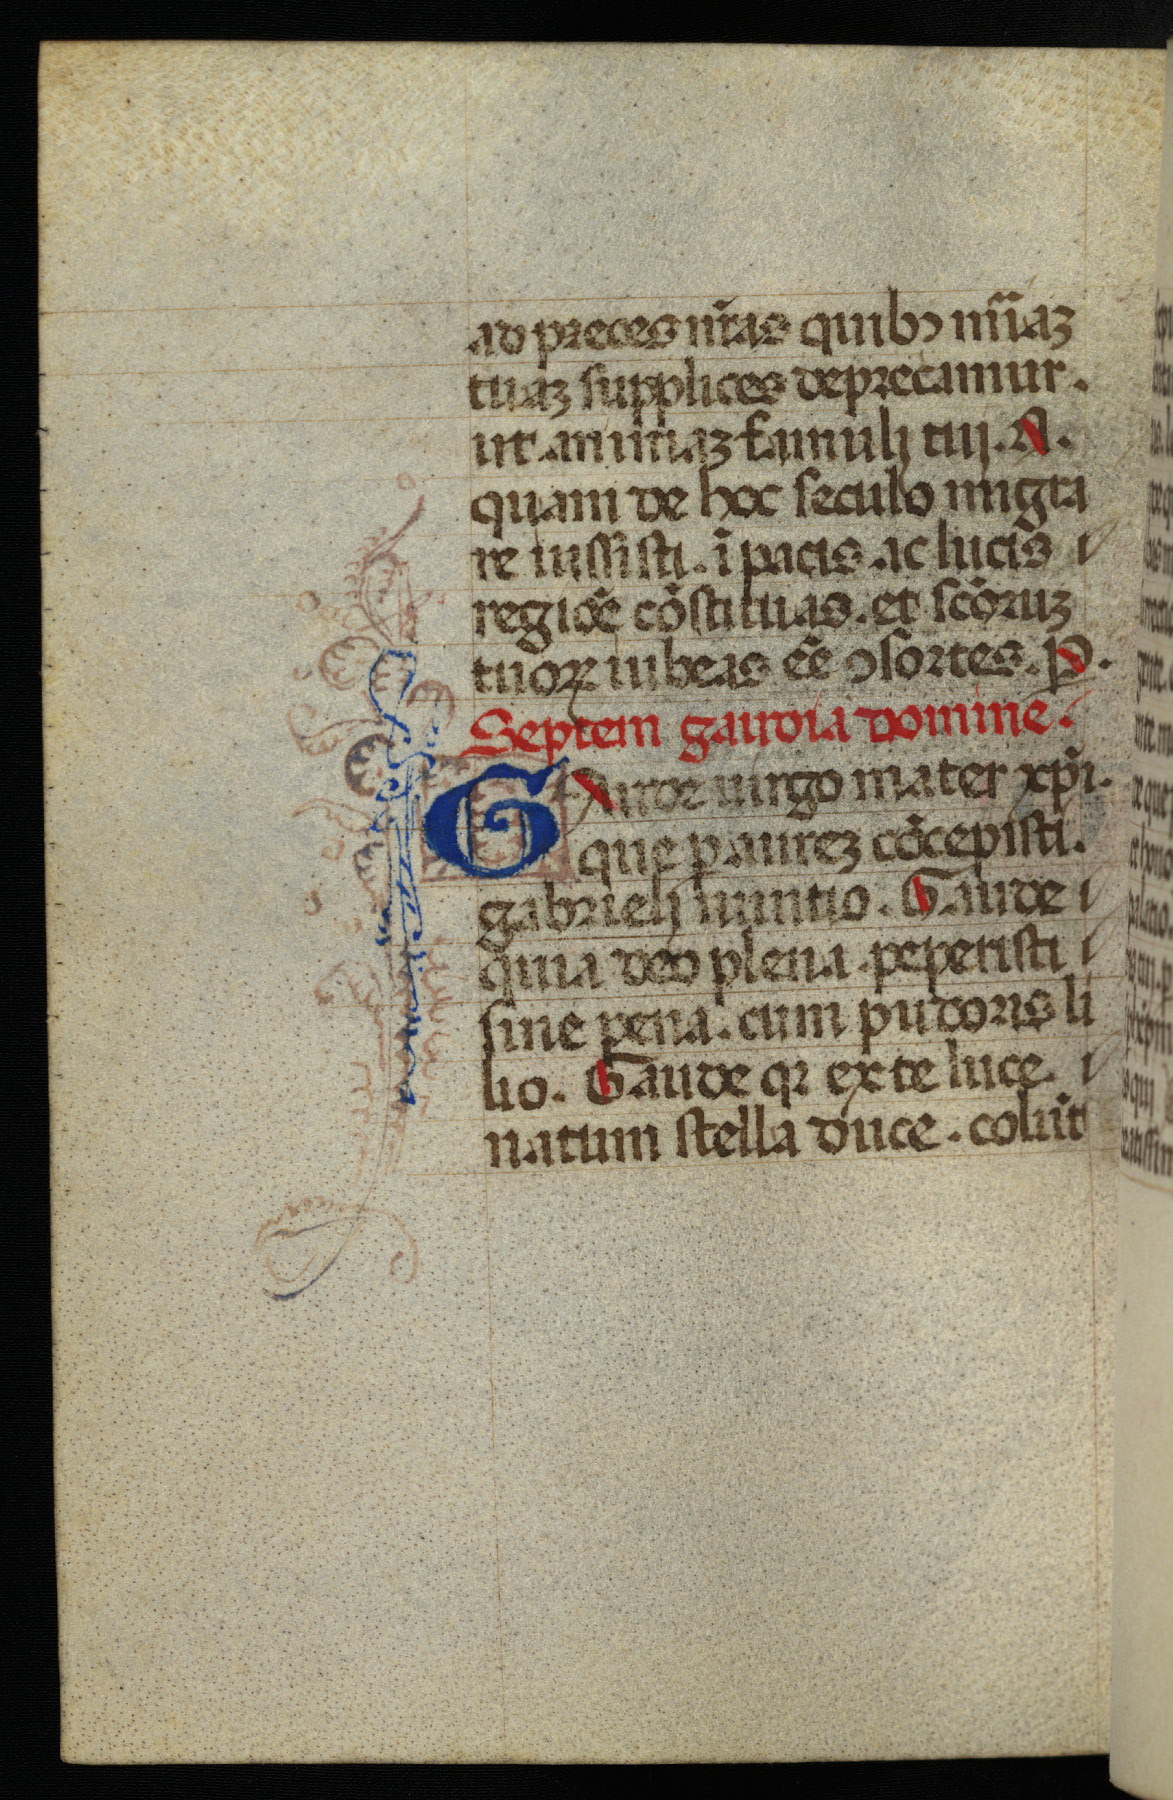 ad preces nr̃as quibꝫ mĩaꝫ
tuaꝫ supplices deprecamur.
ut animaꝫ famulj tuj. N.
quam de hoc seculo migra
re iussisti. ĩ pacis ac lucis
regiõe cõstituas. et scõruꝫ
tuoꝝ iubeas eẽ ꝯsortes. P.
Septem gaudia domine.
GAude uirgo mater xp̃i.
que p aureꝫ cõcepisti.
gabrielj nuntio. Gaude
quia deo plena peperisti
sine pena. cum pudoris li
lio. Gaude qꝛ ex te luce.
natum stella duce. colũt